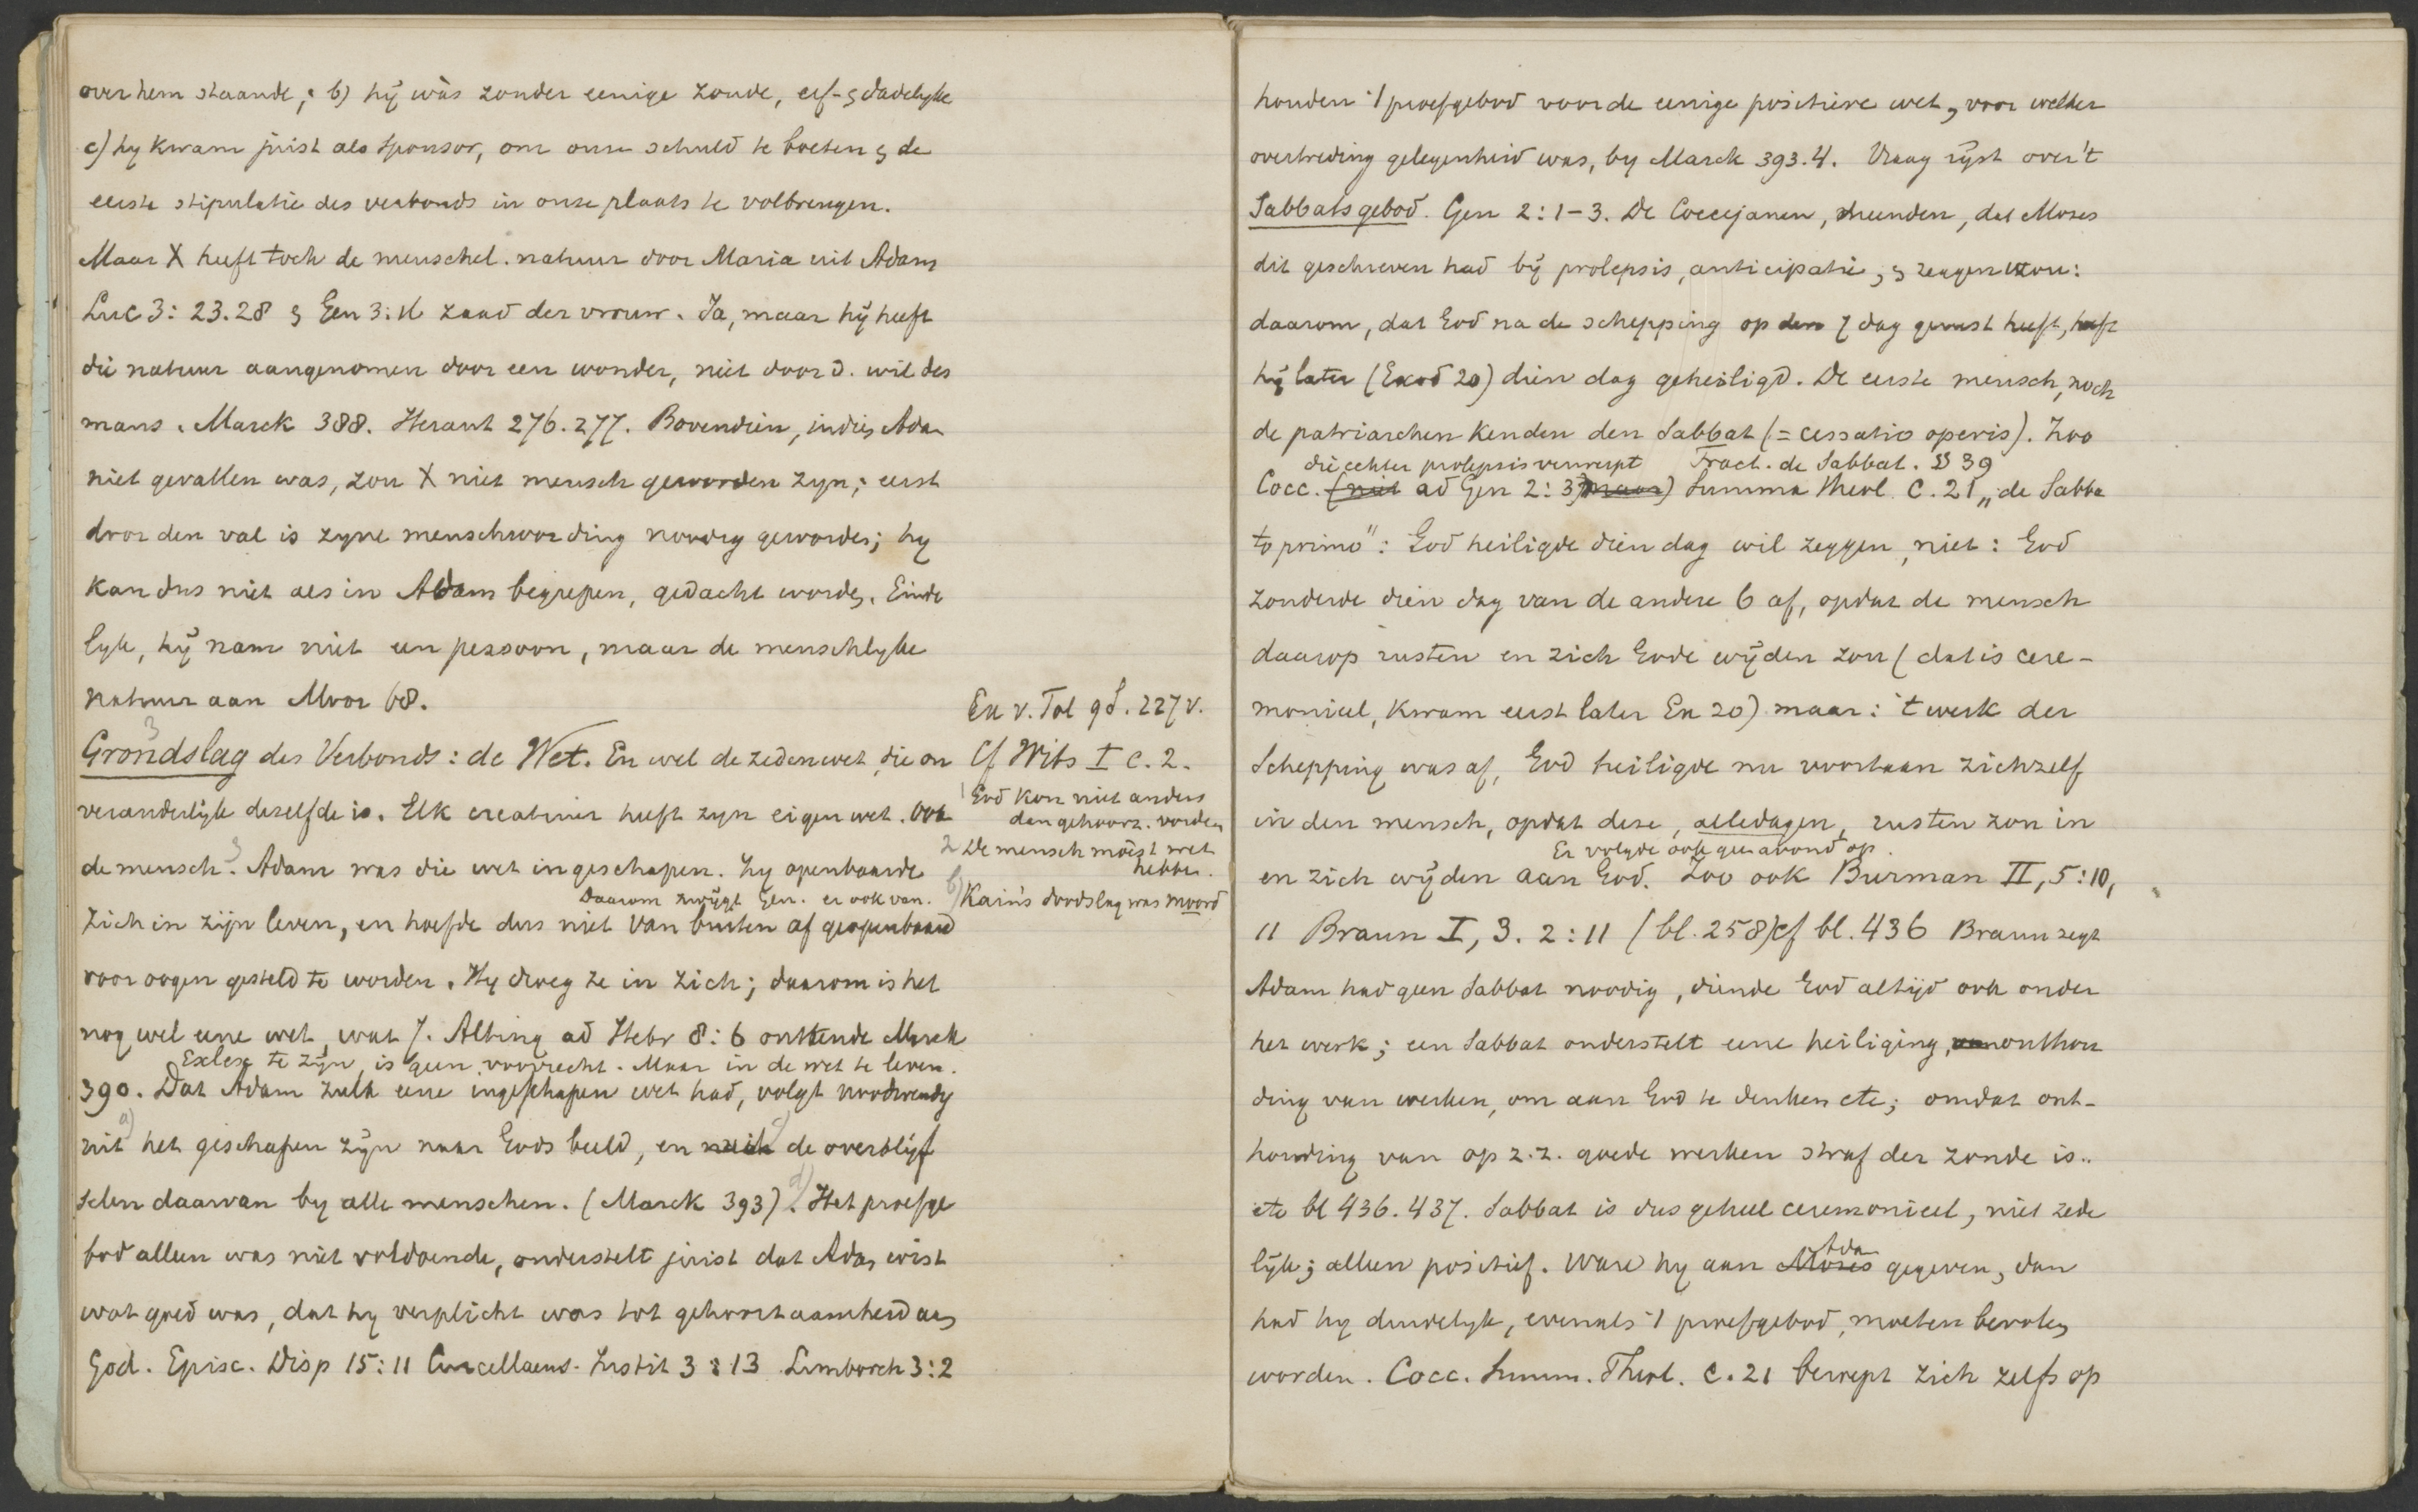 over hem staande; b) hij was zonder eenige zonde, erf- & dadelyke
c) hy kwam juist als sponsor, om onze schuld te boeten & de
eerste stipulatie des verbonds in onze plaats te volbrengen.
Maar X heeft toch de menschel. natuur door Maria uit Adam
Luc 3: 23.28 & Gen 3: zaad der vrouw. Ja, maar hij heeft
die natuur aangenomen door een wonder, niet door d. wil des
mans. Marck 388. Heraut 276.277. Bovendien, indien Adam
niet gevallen was, zou X niet mensch geworden zyn; eerst
door den val is zyne menschwording noodig geworden; hy
kan dus niet als in Adam begrepen, gedacht worden. Einde
lyk, hij nam niet een persoon, maar de menschlyke
natuur aan Moor 68.
Ex v. Tol gd. 227 v.
3
Grondslag des Verbonds: de Wet. En wel de zedenwet, die on
Cf Wits I c. 2.
veranderlijk dezelfde is. Elk creatuur heeft zyn eigen wet. Ook
1 God kon niet anders
dan gehoorz. vorderen
de mensch. Adam was die wet ingeschapen. Zy openbaarde
2 De mensch moest wet
hebben.
Daarom zwijgt Gen. er ook van.
b) Kaïn's doodslag was moord
zich in zijn leven, en hoefde dus niet van buiten af geopenbaard
voor oogen gesteld te worden. Hy droeg ze in zich; daarom is het
nog wel eene wet, wat J. Alting ad Hebr 8: 6 ontkende Marck
Exlex te zijn, is geen voorrecht. Maar in de wet te leven.
390. Dat Adam zulk eene ingeschapen wet had, volgt noodwendig
a) uit het geschapen zijn naar Gods beeld, en uit c) de overblijf
selen daarvan by alle menschen. (Marck 393). d) Het proefge
bod alleen was niet voldoende, onderstelt juist dat Adam wist
wat goed was, dat hy verplicht was tot gehoorzaamheid aan
God. Episc. Disp 15: 11 Curcellaeus. Instit 3: 13 Limborch 3: 2
houden 't proefgebod voor de eenige positieve wet, voor welker
overtreding gelegenheid was, by Marck 393.4. Vraag rijst over 't
Sabbatsgebod. Gen 2: 1-3. De Coccejanen, meenden, dat Mozes
dit geschreven had bij prolepsis, anticipatie, & zeggen wou:
daarom, dat God na de schepping op den 7 dag gerust heeft, heeft
hij later (Exod 20) dien dag geheiligd. De eerste mensch, noch
de patriarchen kenden den Sabbat (= cessatio operis). Zoo
die echter prolepsis verwerpt Tract. de Sabbat. § 39
Cocc. (niet ad Gen 2: 3) maar) Summa Theol. C. 21 „de Sabba
to primo": God heiligde dien dag wil zeggen, niet: God
zonderde dien dag van de andere 6 af, opdat de mensch
daarop rusten en zich Gode wijden zou (dat is cere-
monieel, kwam eerst later Ex 20) maar: 't werk der
Schepping was af, God heiligde nu voortaan zichzelf
in den mensch, opdat deze, alledagen, rusten zou in
Er volgde ook geen avond op.
en zich wijden aan God. Zoo ook Burman II, 5: 10,
11 Braun I, 3. 2: 11 (bl. 258) cf bl. 436 Braun zegt
Adam had geen Sabbat noodig, diende God altijd ook onder
het werk; een Sabbat onderstelt eene heiliging, onthou
ding van werken, om aan God te denken etc; omdat ont-
houding van op z.z. goede werken straf der zonde is..
etc bl 436.437. Sabbat is dus geheel ceremonieel, niet zede
lijk; alleen positief. Ware hy aan Mozes Adam gegeven, dan
had hy duidelyk, evenals 't proefgebod, moeten bevolen
worden. Cocc. Summ. Theol. C. 21 beroept zich zelfs op